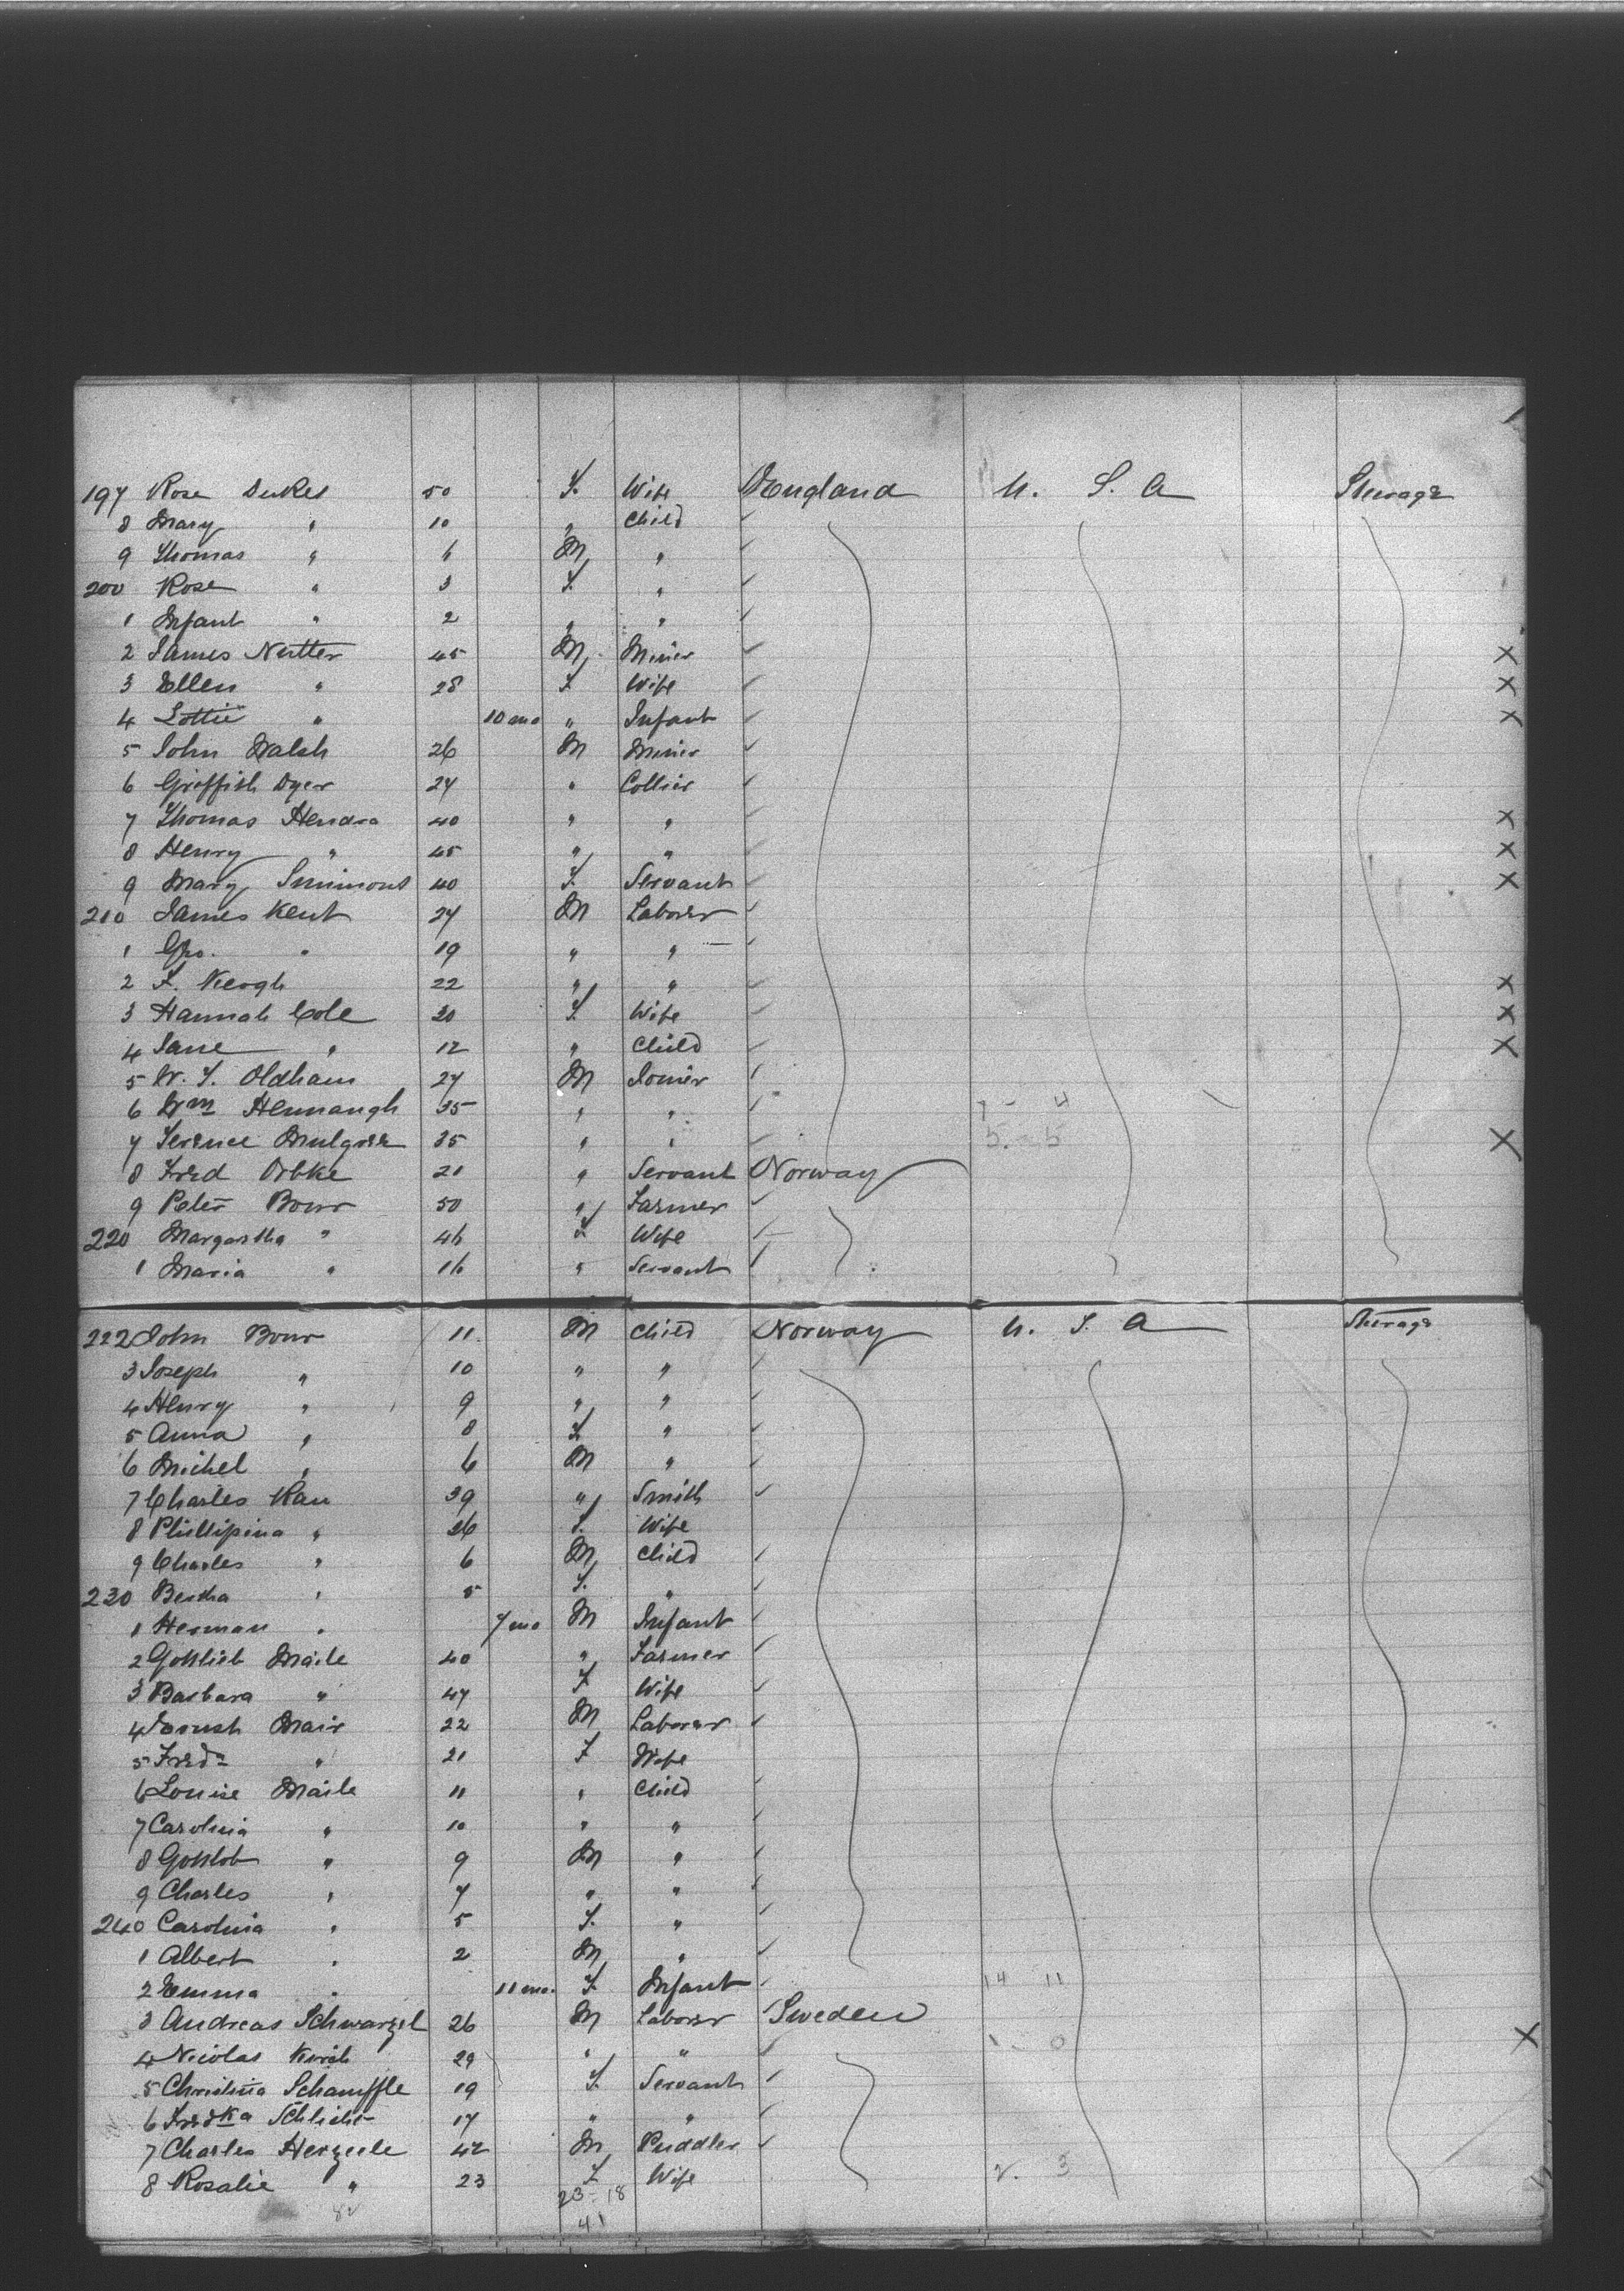 197 Rose Dukes 50 F. Wife England U. S. A Steerage
8 Mary " 10 " Child
9 Thomas " 6 M "
200 Rose " 3 F. "
1 Infant " 2 " "
2 James Nutter 45 M Miner
3 Ellen " 28 F Wife
4 Lottie " 10 mo " Infant
5 John Walsh 26 M Miner
6 Griffith Dyer 24 " Collier
7 Thomas Hendra 40 " "
8 Henry " 45 " "
9 Mary Simmons 40 F. Servant
210 James Kent 24 M Laborer
1 Geo. " 19 " "
2 F. Keogh 22 " "
3 Hannah Cole 30 F. Wife
4 Jane " 12 " Child
5 W. T. Oldham 24 M Joiner
6 Wm Hennaugh 35 " "
7 Terence Mulgree 35 " "
8 Fred Orbke 21 " Servant Norway
9 Peter Bour 50 " Farmer
220 Margartha " 46 F Wife
1 Maria " 16 " Servant
222 John Bour 11 M Child Norway U. S. A Steerage
3 Joseph " 10 " "
4 Henry " 9 " "
5 Anna " 8 F "
6 Michel " 6 M "
7 Charles Rau 39 " Smith
8 Phillipina " 26 F. Wife
9 Charles " 6 M Child
230 Bertha " 5 F. "
1 Herman " 7 mo M Infant
2 Gottlieb Maile 40 " Farmer
3 Barbara " 47 F Wife
4 Mair 22 M Laborer
5 Freda " 21 F Wife
6 Louise Maile 11 " Child
7 Carolina " 10 " "
8 Gottlob " 9 M "
9 Charles " 7 " "
240 Carolina " 5 F. "
1 Albert " 2 M "
2 Emma " 11 mo. F. Infant 14 11
3 Andreas Schwarzel 26 M Laborer Sweden
4 Nicolas Kirch 29 " " 1. 0
5 Christina Schauffle 19 F. Servant
6 Fredka Schlicht 17 " "
7 Charles Herzeele 42 M Puddler
8 Rosalie " 23 F Wife 2. 3
23-18
41